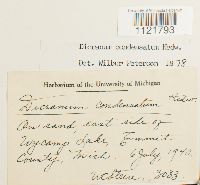 1121793
Dicranum condensatum Hedw.
Det. Wilbur Peterson 1978
Herbarium of the University of Michigan
Dicranum condensatum Hedw.
On sand, east side of
Wycamp Lake, Emmet
County, Mich. July 1940.
3033